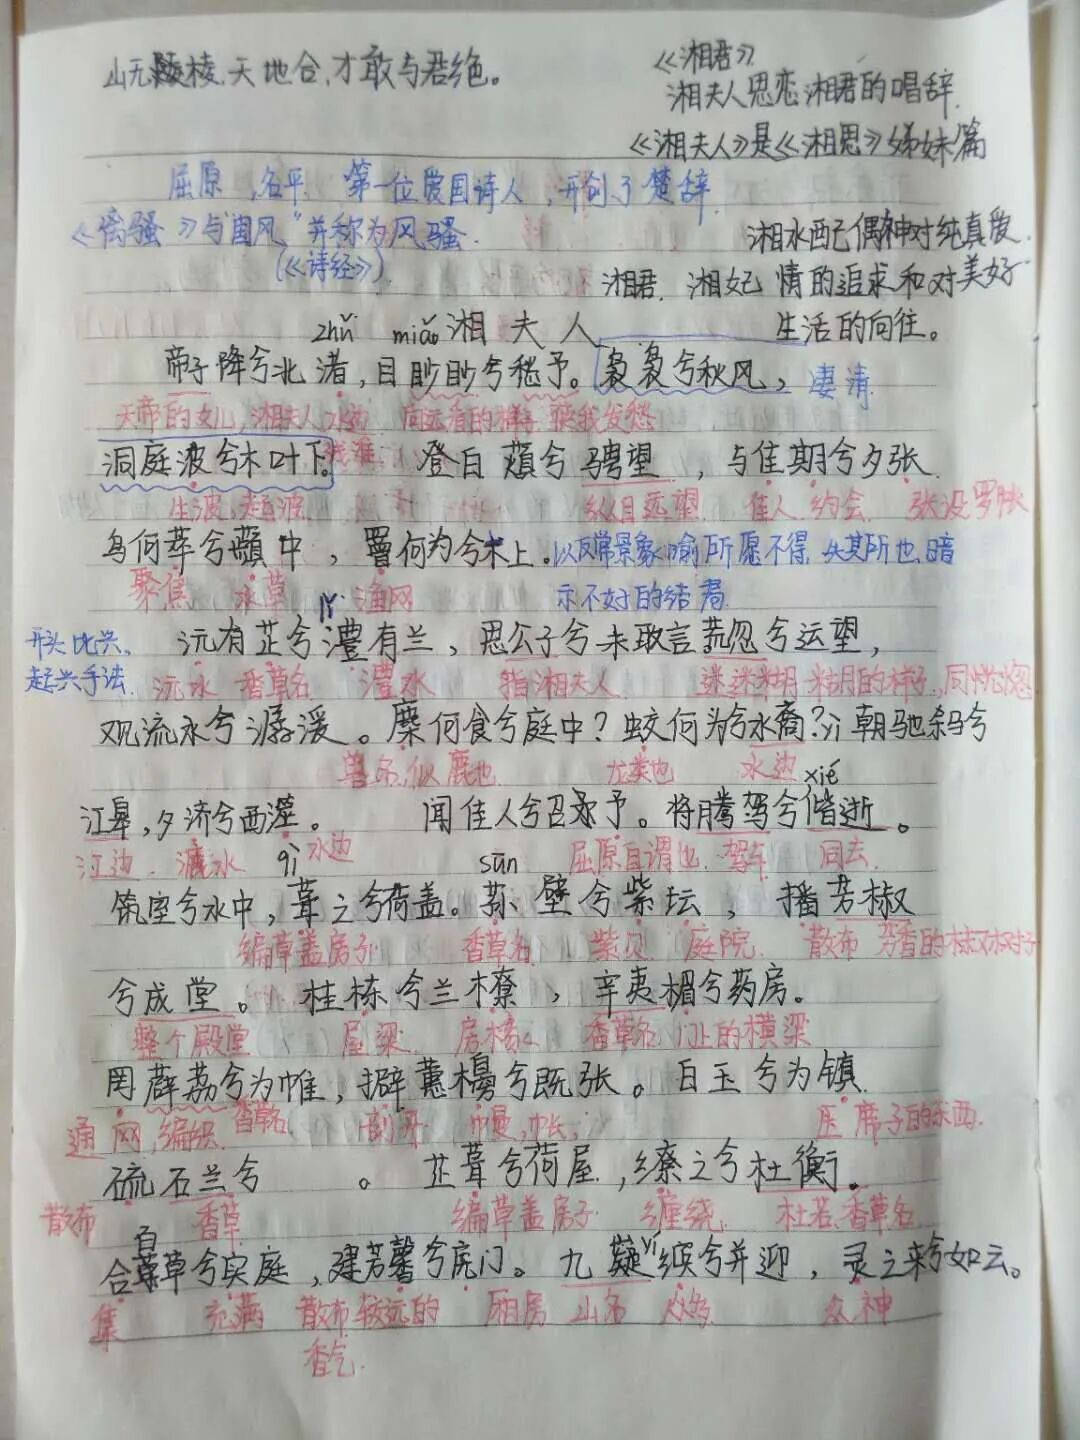 山无棱,天地合,才敢与君绝。
《湘君》
湘夫人思恋湘君的唱辞.
《湘夫人》是《湘思》姊妹篇
屈原,名平 第一位爱国诗人,开创了楚辞.
《离骚》与"国风"并称为风骚.
(《诗经》)
湘水配偶神对纯真爱
湘君.湘妃 情的追求和对美好
生活的向往。
zhǔ miǎo 湘夫人
帝子降兮北渚,目眇眇兮愁予。袅袅兮秋风, 凄清
天帝的女儿,湘夫人 水边 向远看的样子 使我发愁
浅滩
洞庭波兮木叶下。 登白薠兮骋望,与佳期兮夕张
生波,起波 纵目远望 佳人 约会 张设罗帐
鸟何萃兮蘋中,罾何为兮木上。以反常景象喻所愿不得,失其所也,暗
聚集 水草 渔网 示不好的结局
lǐ
开头比兴、
起兴手法
沅有芷兮澧有兰,思公子兮未敢言荒忽兮远望,
沅水 香草名 澧水 指湘夫人 迷迷糊糊的样子,同恍惚
观流水兮潺湲。麋何食兮庭中?蛟何为兮水裔?朝驰余马兮
兽名,似鹿也 龙类也 水边 xié
江皋,夕济兮西澨。 闻佳人兮召予。将腾驾兮偕逝。
江边 渡水 水边 屈原自谓也 驾车 同去
qì sūn
筑室兮水中,葺之兮荷盖。荪壁兮紫坛,播芳椒
编草盖房子 香草名 紫贝 庭院 散布 芳香的
兮成堂。桂栋兮兰橑,辛夷楣兮药房。
整个殿堂 屋梁 房椽 香草名 门上的横梁
罔薜荔兮为帷,擗蕙櫋兮既张。白玉兮为镇
通网,编织 香草名 剖开 幔,帐 压席子的东西.
疏石兰兮 。 芷葺兮荷屋,缭之兮杜衡。
散布 香草 编草盖房子 缠绕 杜若,香草名
合百草兮实庭,建芳馨兮庑门。九嶷缤兮并迎,灵之来兮如云。
yí
集 充满 散布较远的 厢房 山名 众多 众神
香气.